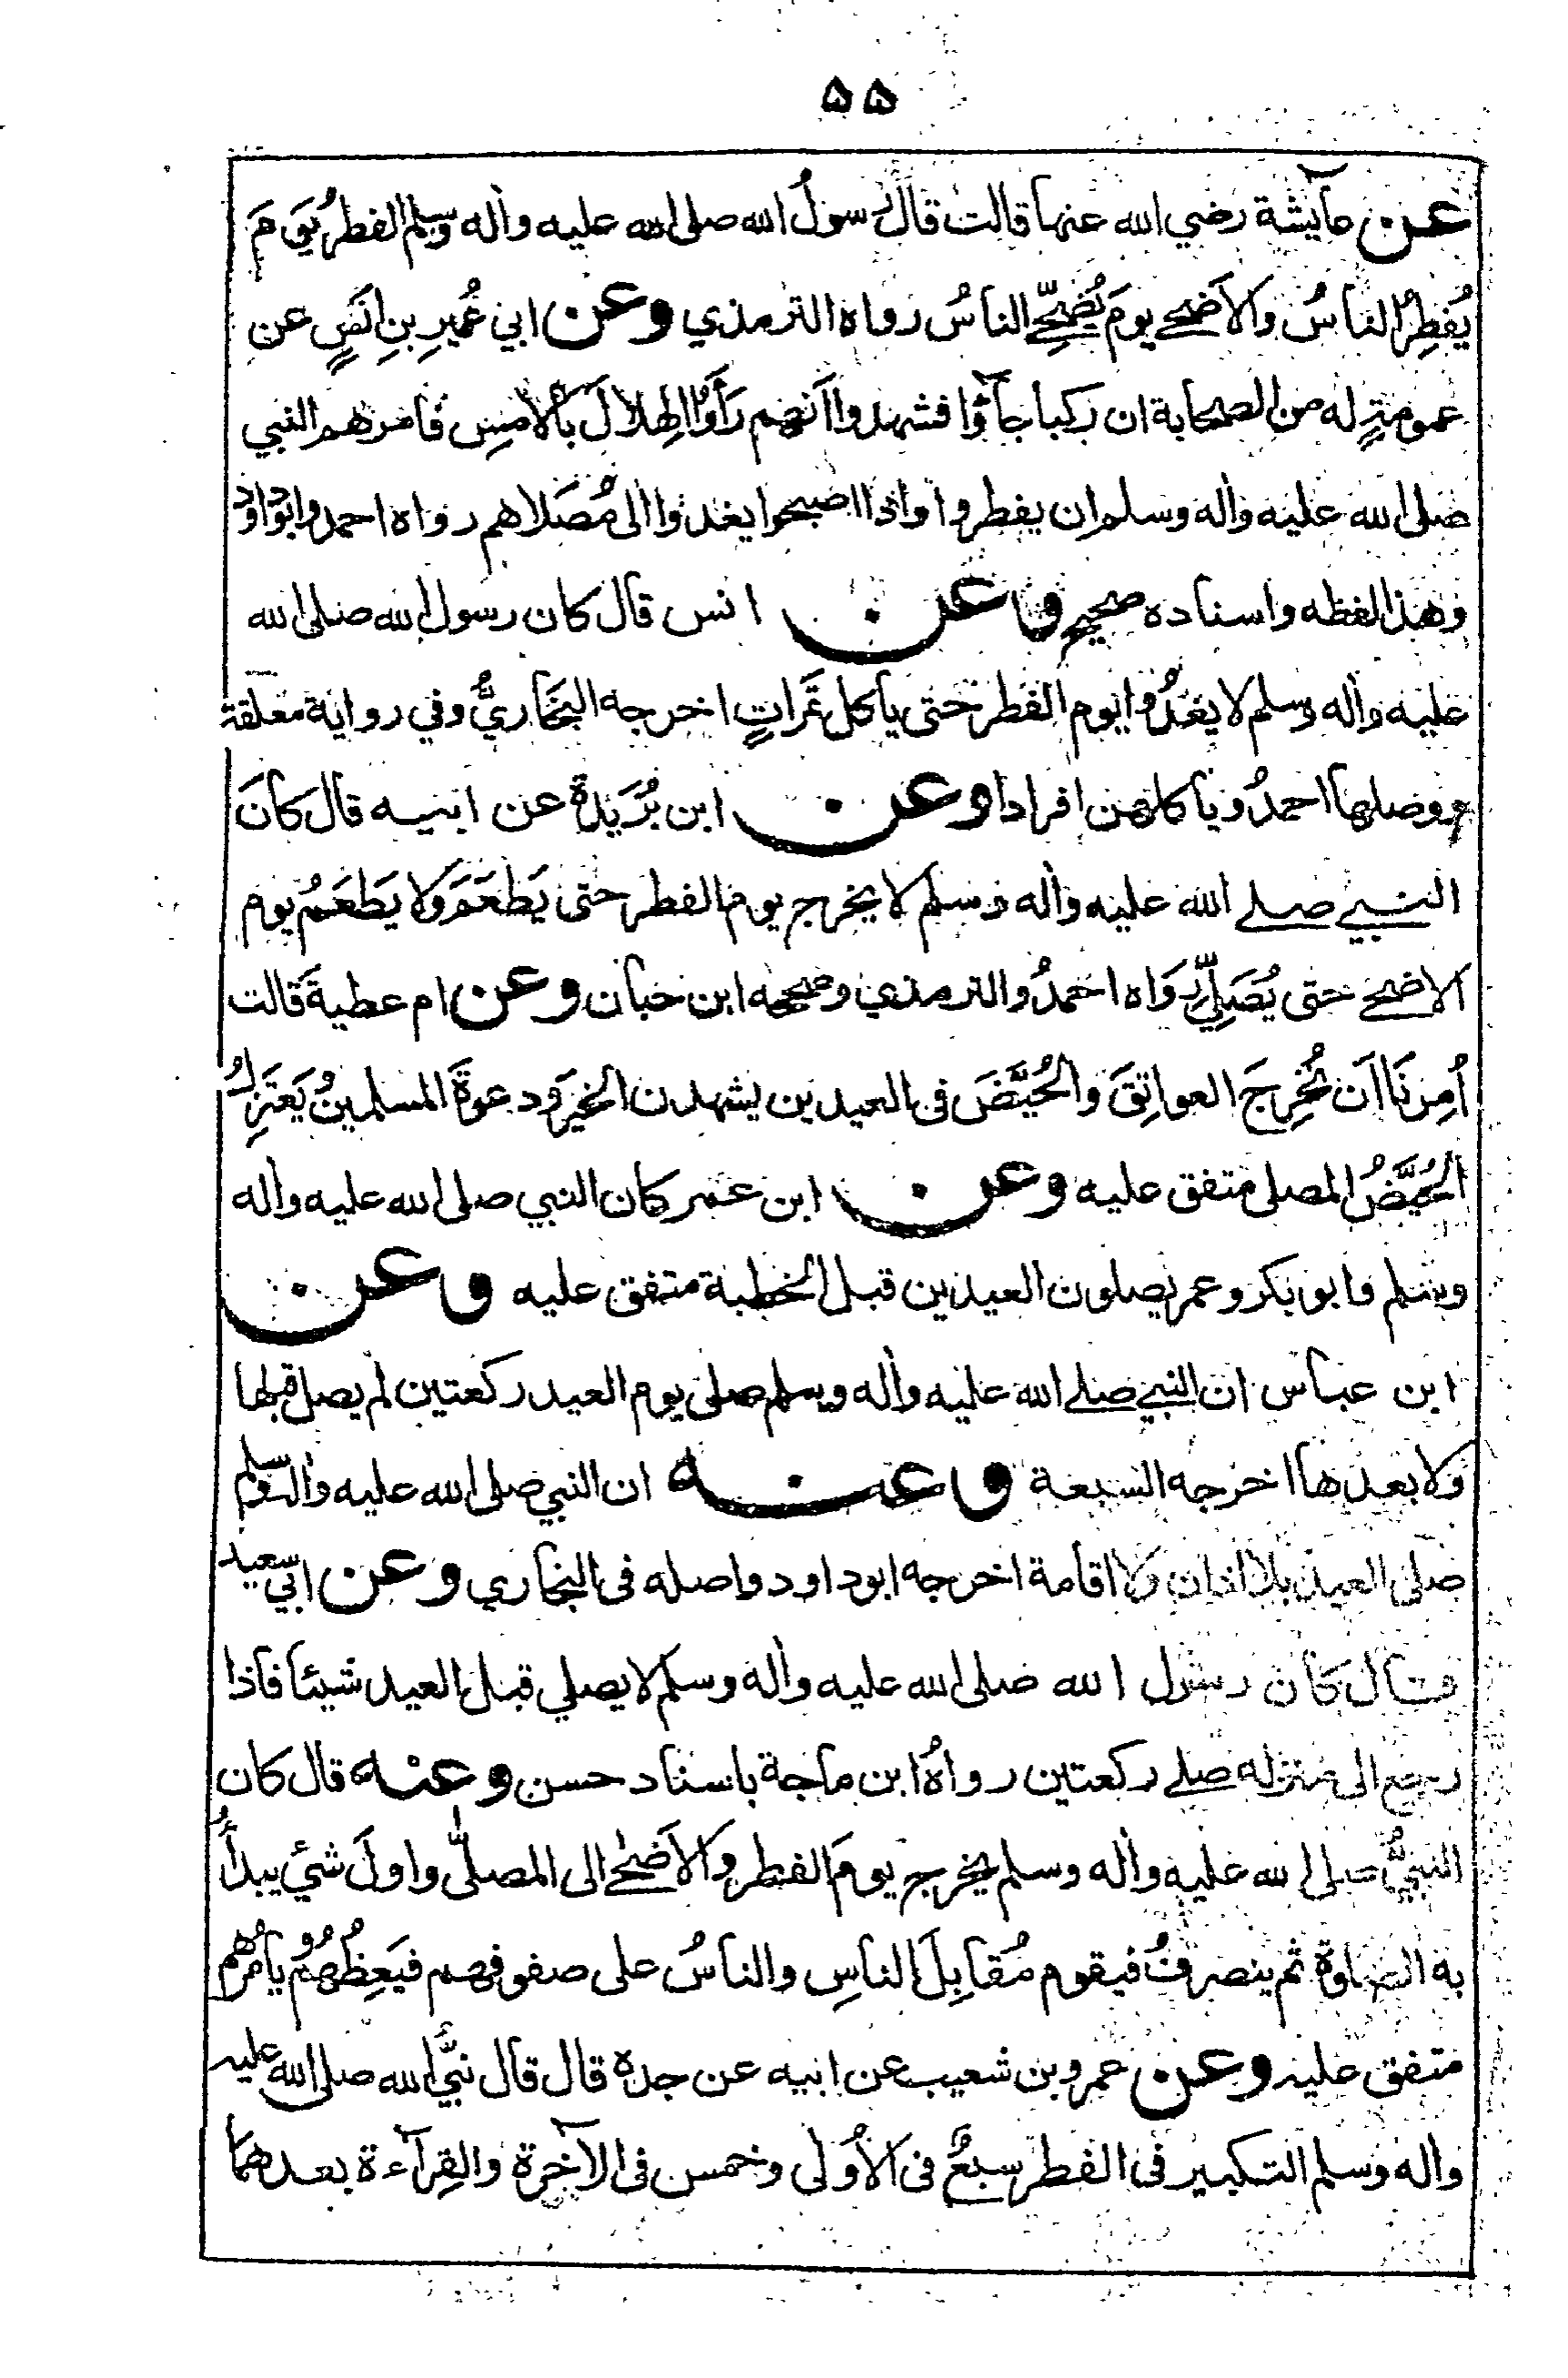 ۵۵
عن عآيشة رضي الله عنها قالت قال رسولُ الله صلى الله عليه واٰله وسلم الفطرُ يَومَ
يُفطِرُ الناسُ والاَضحٰے يومَ يُضحِّے الناسُ رواه الترمذي وعن ابي عُميرِ بنِ انَسٍ عن
عمومةٍ له من الصحابة ان ركبا جآؤا فشهدوا اَنهم رَأَوُا الهِلالَ بالاَمسِ فامرهم النبي
صلى الله عليه واٰله وسلم ان يفطروا واذا اصبحوا يغدوا الى مُصَلاهم رواه احمد وابوداود
وهذا لفظه واسناده صحيح وعن انس قال كان رسول الله صلى الله
عليه واٰله وسلم لا يغدُوا يوم الفطر حتى ياكل تَمَراتٍ اخرجه البخاريُّ وفي رواية معلقة
ووصلها احمدُ وياكلهن افرادا وعن ابن بُرَيدة عن ابيه قال كانَ
النبيے صلے الله عليه واٰله وسلم لا يخرج يوم الفطر حتى يَطعَمَ وَلا يَطعَمُ يوم
الاضحے حتى يُصَلِّي رَوَاه احمدُ والترمذي وصححه ابن حبان وعن ام عطيةَ قالت
اُمِرنَا اَن نُخرِجَ العواتِقَ والحُيَّضَ فى العيدين يشهدن الخيرَ ودعوةَ المسلمينُ يَعتَزِلُ
الحُيَّضُ المصلى متفق عليه وعن ابن عمر كان النبي صلى الله عليه واٰله
وسلم وابو بكر وعمر يصلون العيدين قبل الخطبة متفق عليه وعن
ابن عباس ان النبيے صلے الله عليه واٰله وسلم صلى يوم العيد ركعتين لم يصل قبلها
ولا بعدها اخرجه السبعة وعنه ان النبي صلى الله عليه واٰله وسلم
صلى العيد بلا اذان ولا اقامة اخرجه ابوداود واصله فى البخاري وعن ابي سعيد
قال كان رسول الله صلى الله عليه واٰله وسلم لا يصلي قبل العيد شيئا فاذا
رجع الى منزله صلے ركعتين رواهُ ابن ماجة باسناد حسن وعنه قال كان
النبيُّ صلى الله عليه واٰله وسلم يخرج يومَ الفطر والاَضحٰے الى المصلّٰى واولَ شيٍ يبدأُ
به الصلوة ثم ينصرفُ فيقوم مُقابِلَ الناسِ والناسُ على صفوفهم فيَعِظُهُم ويامُرُهم
متفق عليه وعن عمرو بن شعيب عن ابيه عن جده قال قال نبيُّ الله صلى الله عليه
واٰله وسلم التكبير فى الفطر سبعٌ فى الاُولى وخمس فى الاٰخِرة والقِرآءة بعدهما